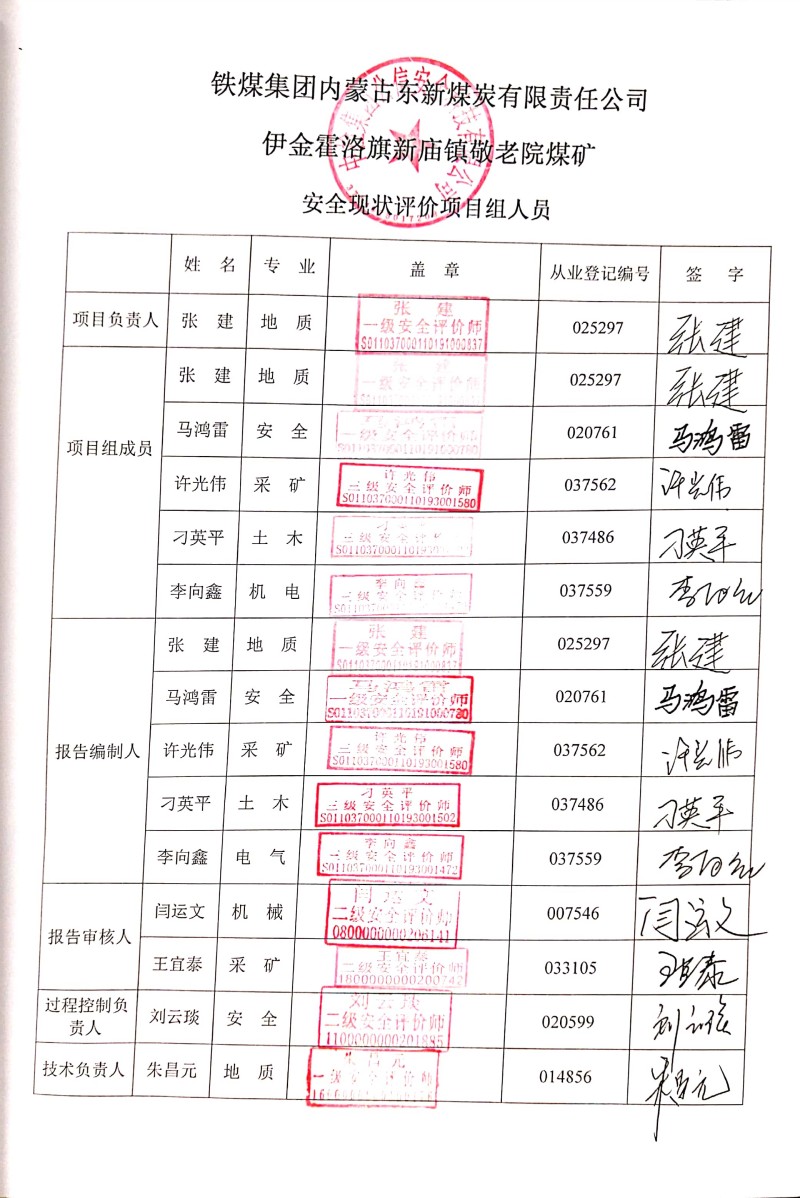 铁煤集团内蒙古东新煤炭有限责任公司
伊金霍洛旗新庙镇敬老院煤矿
安全现状评价项目组人员
姓 名 专 业 盖 章 从业登记编号 签 字
项目负责人 张 建 地 质 张 建 一级安全评价师 S011037000110191000837 025297 张建
项目组成员
张 建 地 质 一级安全评价师 025297 张建
马鸿雷 安 全 S011037000110191000780 020761 马鸿雷
许光伟 采 矿 许光伟 三级安全评价师 S011037000110193001580 037562 许光伟
刁英平 土 木 三级安全评价 037486 刁英平
李向鑫 机 电 三级安全评价师 037559 李向鑫
报告编制人
张 建 地 质 张 建 一级安全评价师 S011037000110191000837 025297 张建
马鸿雷 安 全 马鸿雷 一级安全评价师 S011037000110191000780 020761 马鸿雷
许光伟 采 矿 许光伟 三级安全评价师 S011037000110193001580 037562 许光伟
刁英平 土 木 刁英平 三级安全评价师 S011037000110193001502 037486 刁英平
李向鑫 电 气 李向鑫 三级安全评价师 S011037000110193001472 037559 李向鑫
报告审核人
闫运文 机 械 闫运文 二级安全评价师 0800000000206141 007546 闫运文
王宜泰 采 矿 王宜泰 二级安全评价师 1800000000200742 033105 王宜泰
过程控制负
责人
刘云琰 安 全 刘云琰 二级安全评价师 1100000000201885 020599 刘云琰
技术负责人 朱昌元 地 质 朱昌元 一级安全评价师 014856 朱昌元